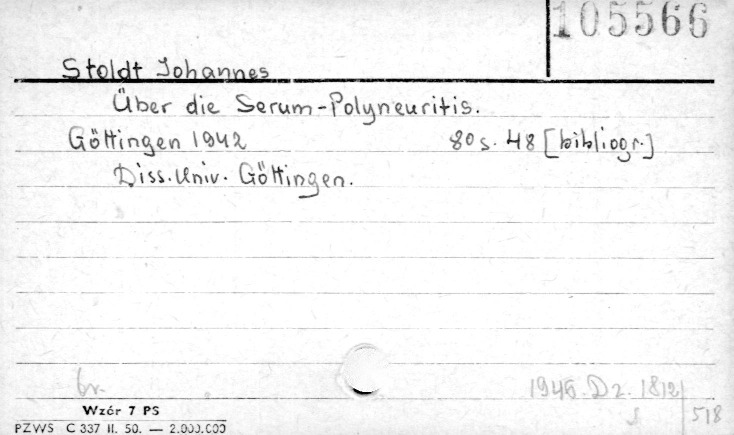 105566
Stoldt Johannes
Über die Serum-Polyneuritis.
Göttingen 1942 8o s. 48 [bibliogr.]
Diss. Univ. Göttingen.
br.
1946. Dz. 1812/
518
Wzór 7 PS
PZWS C 337 II. 50. — 2.000.000